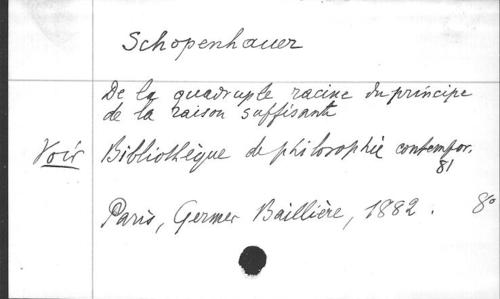 Schopenhauer
De la quadruple racine du principe
de la raison suffisante
Voir Bibliothèque de philosophie contempor.
81
Paris, Germer Baillière, 1882. 8°